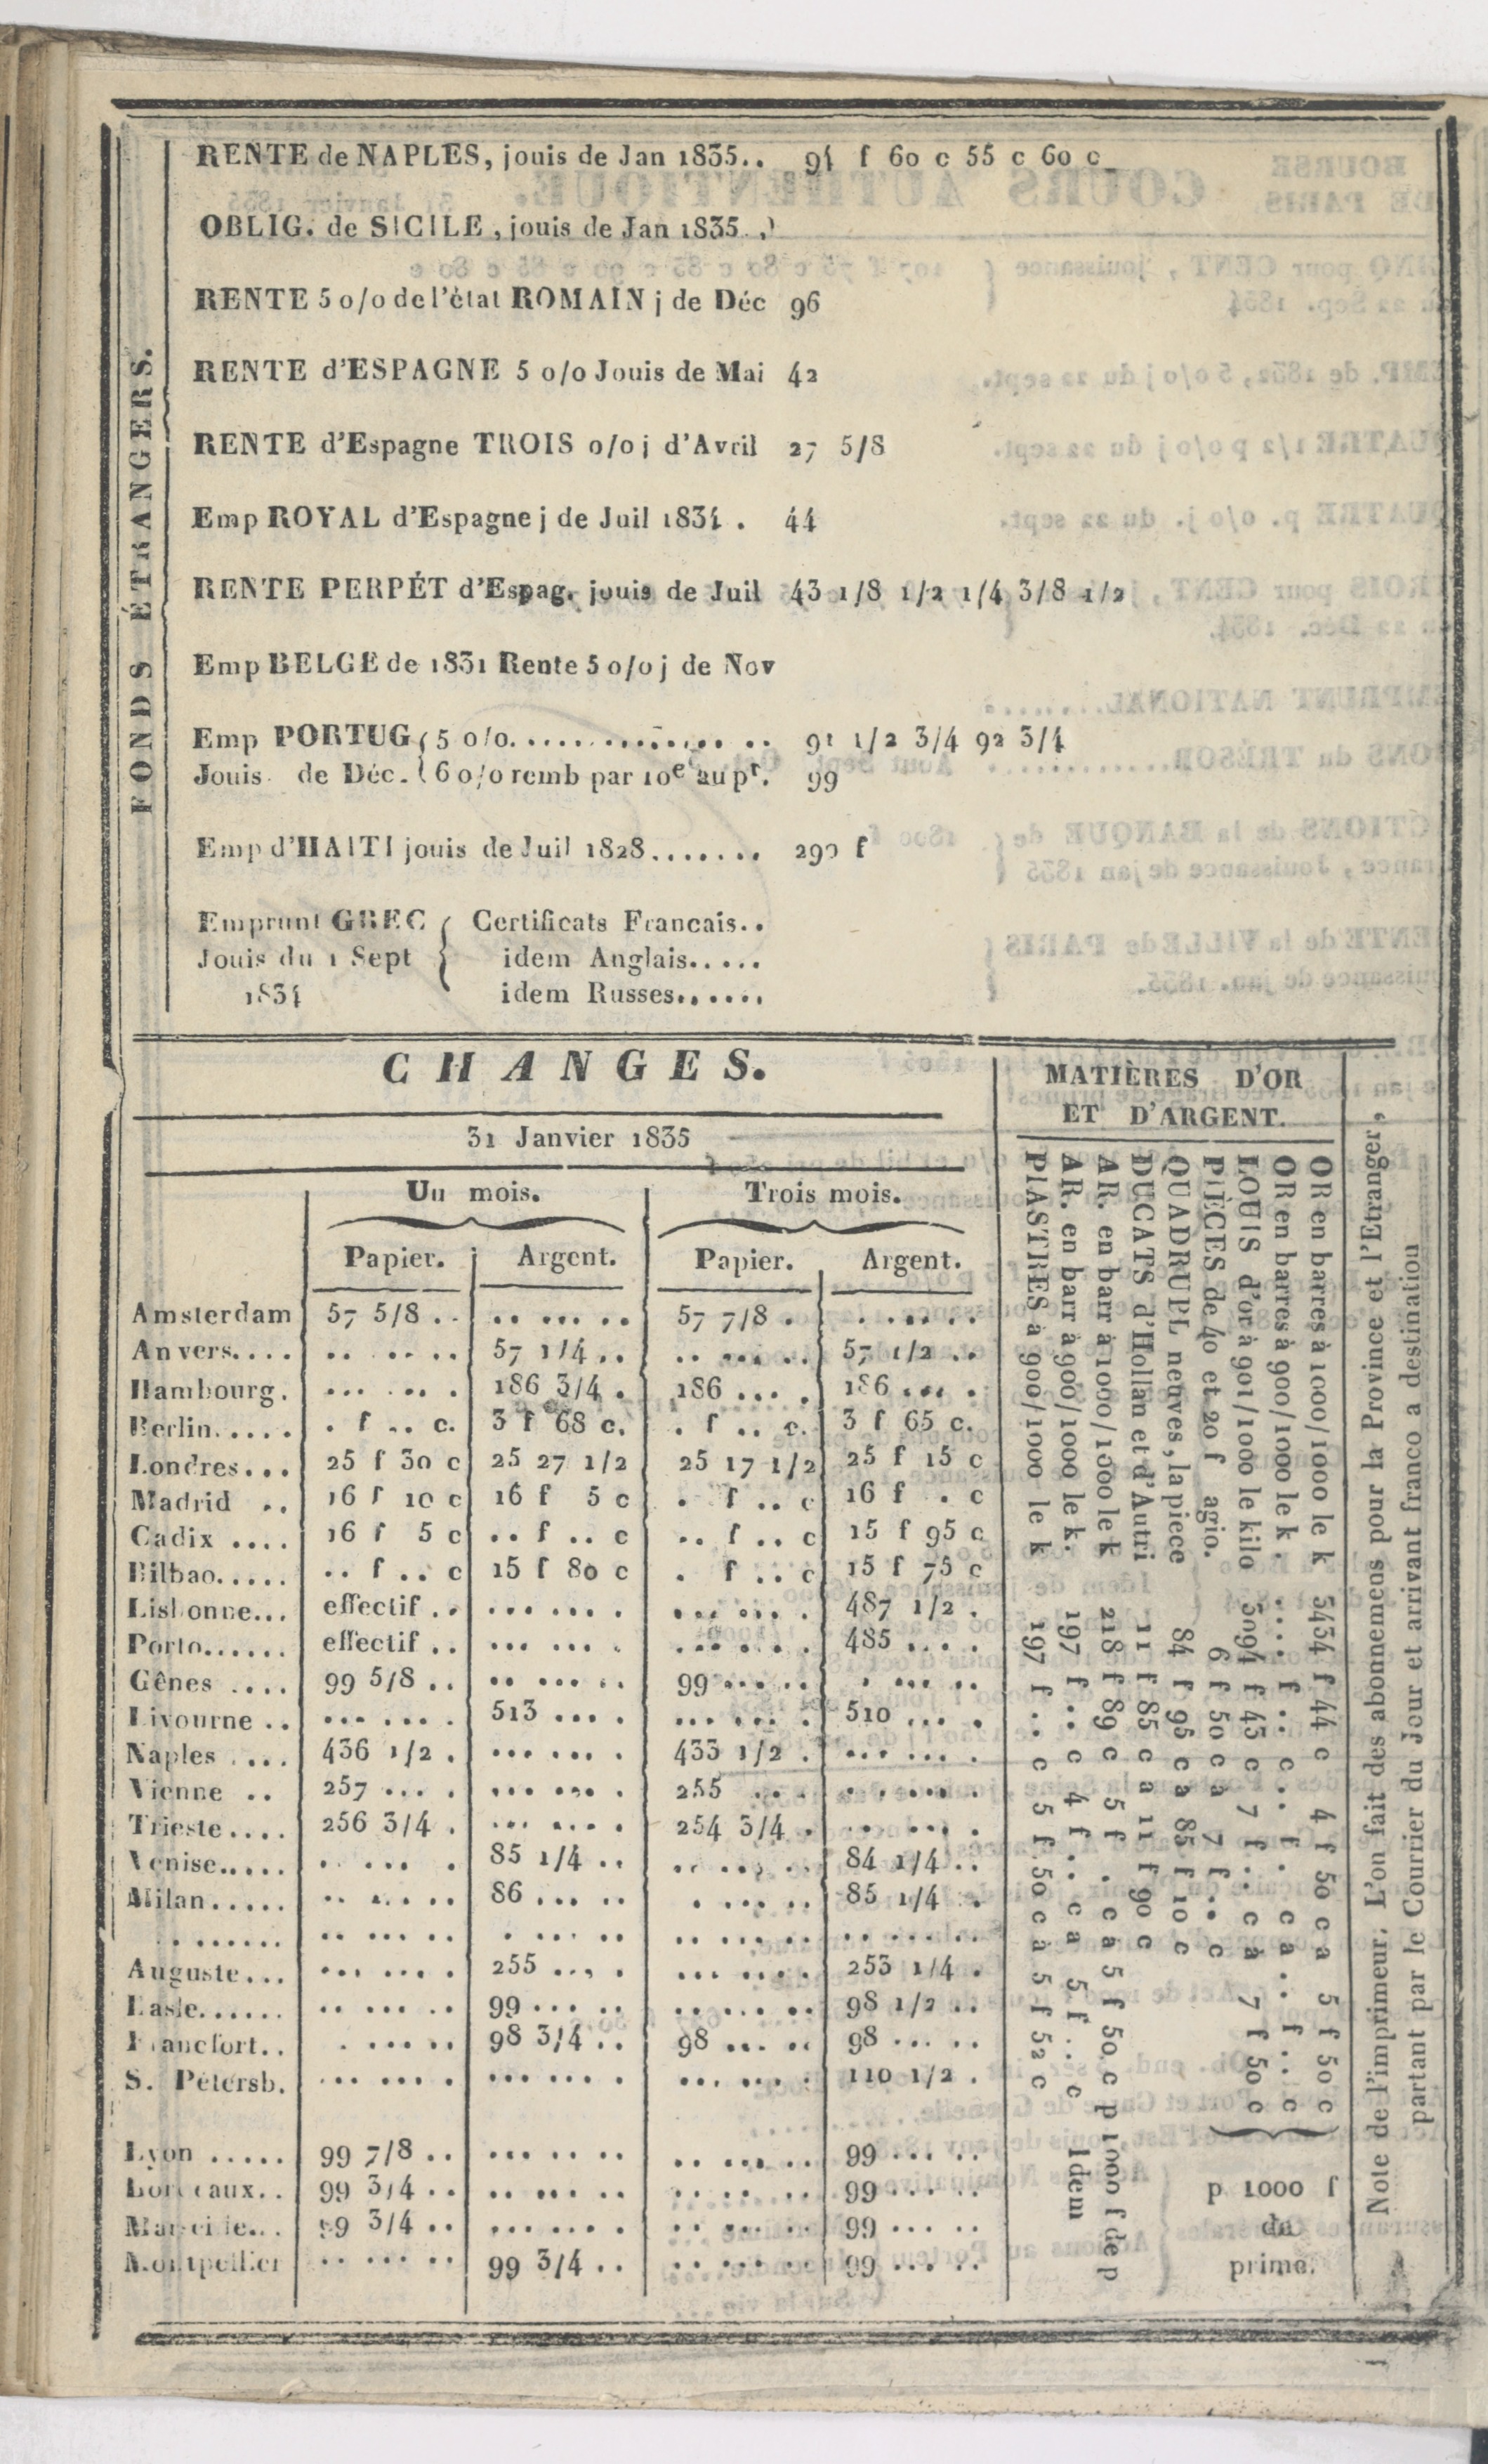 FONDS ÉTRANGERS.
RENTE de NAPLES, jouis de Jan 1835.. 94 f 60 c 55 c 60 c
OBLIG. de SICILE, jouis de Jan 1835..
RENTE 5 o/o de l'état ROMAIN j de Déc 96
RENTE d'ESPAGNE 5 o/o Jouis de Mai 42
RENTE d'Espagne TROIS o/o j d'Avril 27 5/8
Emp ROYAL d'Espagne j de Juil 1834 . 44
RENTE PERPÉT d'Espag. jouis de Juil 43 1/8 1/2 1/4 3/8 1/2
Emp BELGE de 1831 Rente 5 o/o j de Nov
Emp PORTUG { 5 o/o................ 91 1/2 3/4 92 3/4
Jouis de Déc. { 6 o/o remb par 10e au pr. 99
Emp d'HAITI jouis de Juil 1828....... 290 f
Emprunt GREC { Certificats Francais..
Jouis du 1 Sept { idem Anglais.....
1834 idem Russes......
CHANGES.
31 Janvier 1835
Un mois. Trois mois.
Papier. Argent. Papier. Argent.
Amsterdam 57 5/8 .. .. ... .. 57 7/8 . . ... ..
Anvers.... .. .. .. 57 1/4 .. .. ... .. 57 1/2 ..
Hambourg. ... ... . 186 3/4 . 186 ... . 186 ... .
Berlin..... . f .. c. 3 f 68 c. . f .. c. 3 f 65 c.
Londres... 25 f 30 c 25 27 1/2 25 17 1/2 25 f 15 c
Madrid .. 16 f 10 c 16 f 5 c . f .. c 16 f . c
Cadix .... 16 f 5 c .. f .. c .. f .. c 15 f 95 c
Bilbao..... .. f .. c 15 f 80 c . f .. c 15 f 75 c
Lisbonne... effectif .. ... ... . ... ... . 487 1/2 .
Porto...... effectif .. ... ... . ... ... . 485 ... .
Gênes .... 99 5/8 .. .. ... .. 99 ... .. . ... ..
Livourne .. ... ... . 513 ... . ... ... . 510 ... .
Naples .... 436 1/2 . ... ... . 433 1/2 . ... ... .
Vienne .. 257 ... . ... ... . 255 ... . . ... ..
Trieste.... 256 3/4 . ... ... . 254 3/4 . .. ... .
Venise..... . ... . 85 1/4 .. .. ... .. 84 1/4 ..
Milan..... .. ... .. 86 ... .. . ... .. 85 1/4 ..
. ...... .. ... .. . ... .. .. ... .. .. ... ..
Auguste... ... ... . 255 ... . ... ... . 253 1/4 .
Basle...... .. ... .. 99 ... .. .. ... .. 98 1/2 ..
Francfort.. . ... .. 98 3/4 .. 98 ... .. 98 ... ..
S. Pétersb. ... ... . ... ... . ... ... . 110 1/2 .
Lyon ..... 99 7/8 .. ... ... .. .. ... .. 99 ... ..
Bordeaux.. 99 3/4 .. .. ... .. .. ... .. 99 ... ..
Marseille... 99 3/4 .. ... ... . .. ... .. 99 ... ..
Montpellier .. ... .. 99 3/4 .. .. ... .. 99 ... ..
MATIÈRES D'OR
ET D'ARGENT.
OR en barres à 1000/1000 le k 3434 f 44 c 4 f 50 c a 5 f 50 c
OR en barres à 900/1000 le k . .... f .. c .. f . c a .. f .. c
LOUIS d'or à 901/1000 le kilo 3094 f 43 c 7 f .. c à 7 f 50 c
PIÈCES de 40 et 20 f agio. 6 f 50 c à 7 f .. c
QUADRUPL neuves, la piece 84 f 95 c a 85 f 10 c
DUCATS d'Hollan et d'Autri 11 f 85 c a 11 f 90 c
AR. en barr à 1000/1000 le k 218 f 89 c 5 f . c à 5 f 50 c p 1000 f de p
AR. en barr à 900/1000 le k. 197 f .. c 4 f .. c a 5 f .. c Idem
PIASTRES à 900/1000 le k 197 f .. c 5 f 50 c à 5 f 52 c
p 1000 f
de
prime.
Note de l'imprimeur. L'on fait des abonnemens pour la Province et l'Etranger,
partant par le Courrier du Jour et arrivant franco a destination